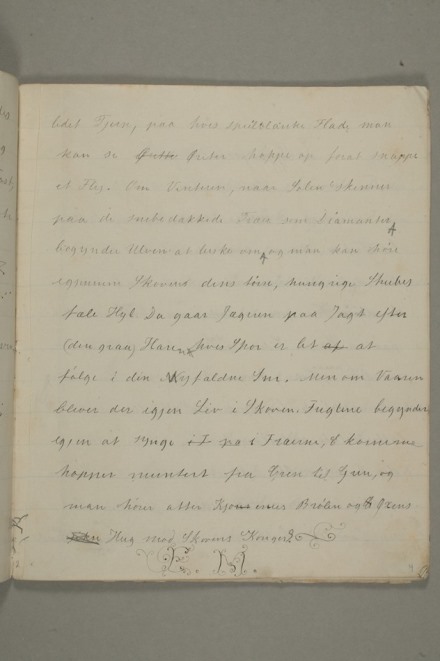 lidet Tjern, paa hvis speilblanke Flade man
kan se Ørette Ørreter hoppe op forat snappe
et Flue. Om Vinteren, naar Solen skinner
paa de snebedækkede Træer som Diamanter
begynder Ulven at tuske om, og man kan høre
igjennem Skovens dens hungrige Strubes
fæle Hyl. Da gaar Jægeren paa Jagt efter
(den graa) Haren hvis Spor er let af at
følge i den Nysfaldne Sne. Men om Vaaren
bliver der igjen Liv i Skoven. Fuglene begynder
igjen at synge i T paa i Træerne, & kornerne
hopper muntert fra Gren til Gren, og
man hører atter Brølen og Øxens
Hug mod Skovens Konger.
E. M.